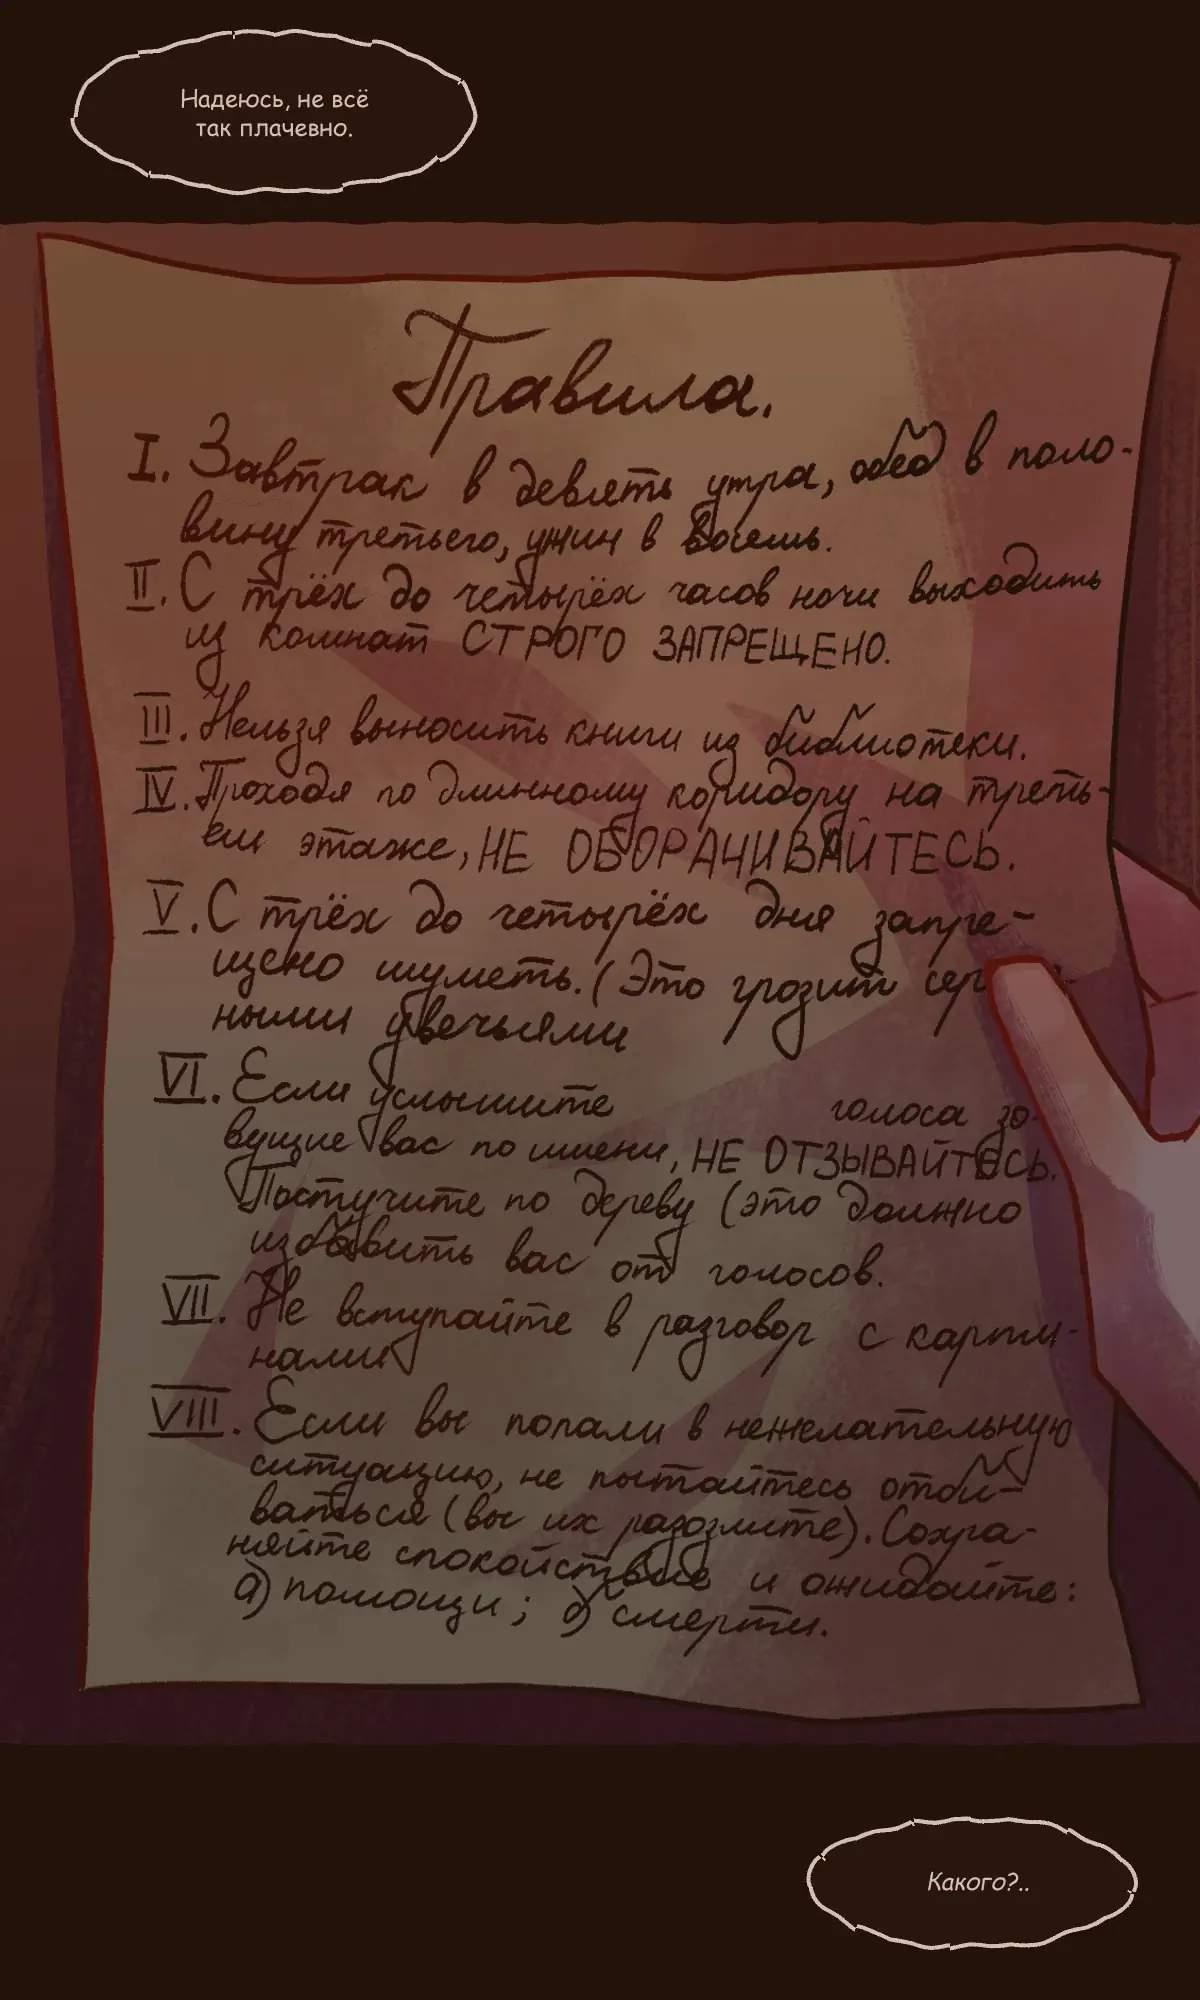 Надеюсь, не всё
так плачевно.
Правила.
I. Завтрак в девять утра, обед в поло-
вину третьего, ужин в восемь.
II. С трёх до четырёх часов ночи выходить
из комнат СТРОГО ЗАПРЕЩЕНО.
III. Нельзя выносить книги из библиотеки.
IV. Проходя по длинному коридору на треть-
ем этаже, НЕ ОБОРАЧИВАЙТЕСЬ.
V. С трёх до четырёх дня запре-
щено шуметь. (Это грозит
ными увечьями
VI. Если услышите голоса зо-
вущие вас по имени, НЕ ОТЗЫВАЙТЕСЬ.
Постучите по дереву (это должно
избавить вас от голосов.
VII. Не вступайте в разговор с карти-
нами
VIII. Если вы попали в нежелательную
ситуацию, не пытайтесь отби-
ваться (вы их разозлите). Сохра-
няйте спокойствие и ожидайте:
а) помощи; б) смерти.
Какого?..